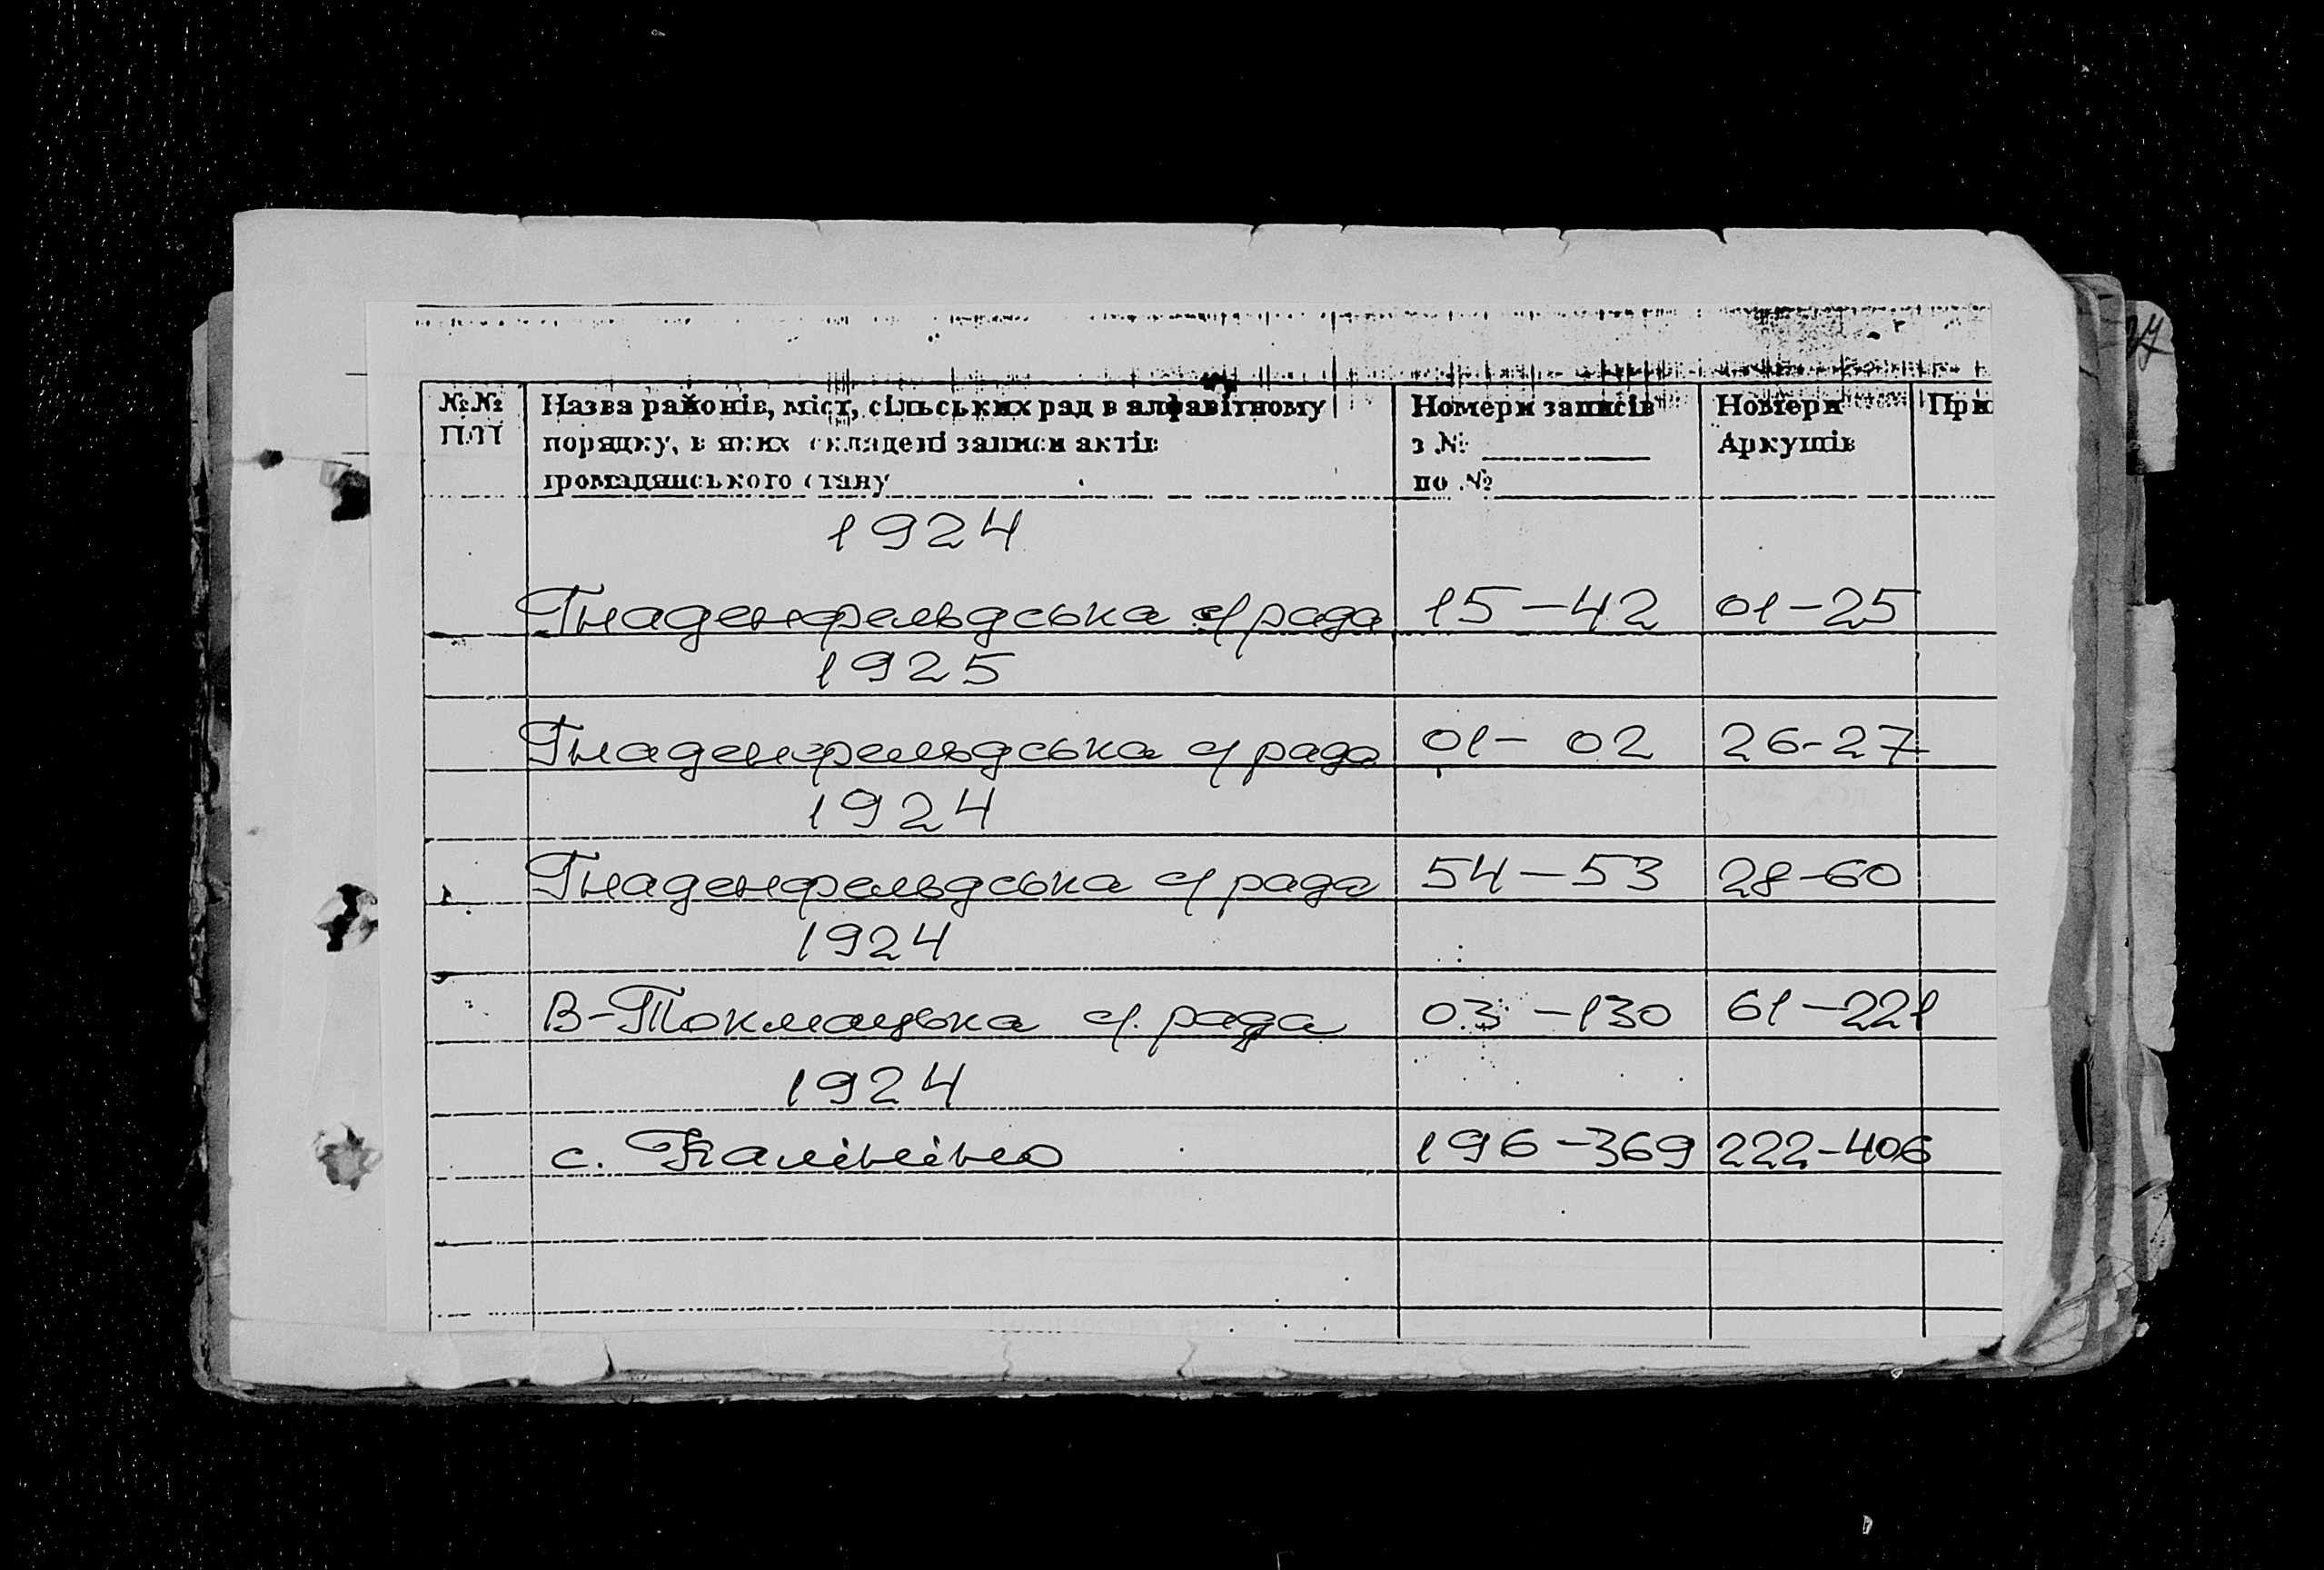 №№ Назва районів, міст, сільських рад в алфавітному Номери записів Номери При
П/П порядку, в яких складені записи актів з № Аркушів
громадянського стану по №
1924
Гнаденфельдська с/рада 15-42 01-25
1925
Гнаденфельдська с/рада 01-02 26-27
1924
Гнаденфельдська с/рада 54-53 28-60
1924
В-Токмацька с/рада 03-130 61-221
1924
с. Калініно 196-369 222-406